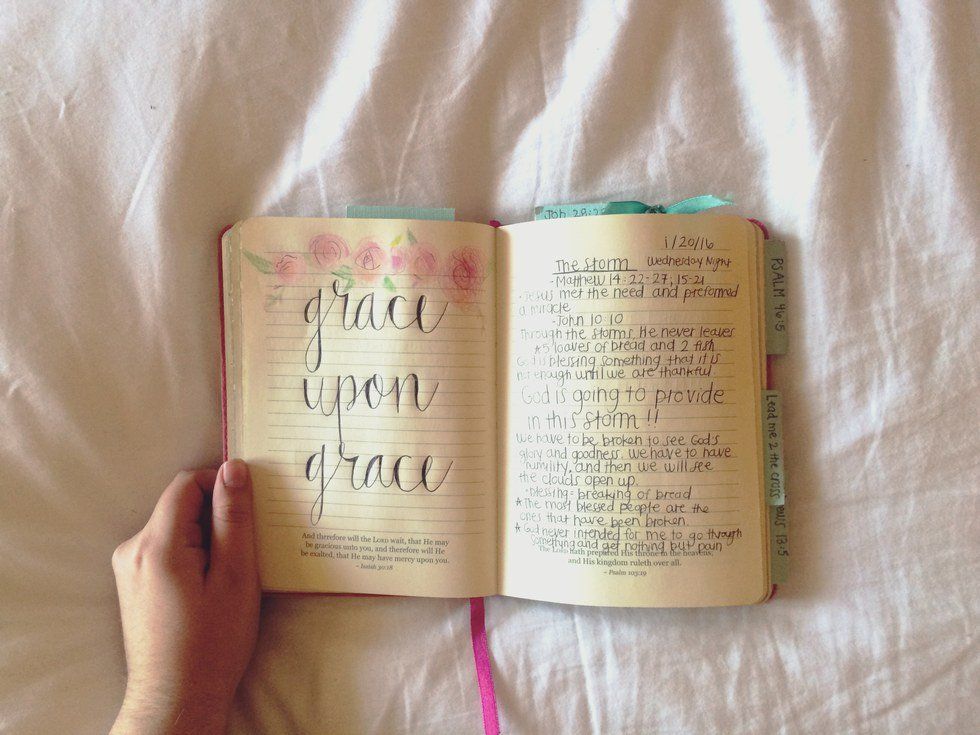 grace
upon
grace
And therefore will the LORD wait, that He may
be gracious unto you, and therefore will He
be exalted, that He may have mercy upon you.
~ Isaiah 30:18
Job 28:2
1/20/16
The Storm Wednesday Night
- Matthew 14:22-27, 15-21
- Jesus met the need and preformed
a miracle
- John 10:10
Through the storms, He never leaves
★5 loaves of bread and 2 fish
God is blessing something that it is
not enough until we are thankful.
God is going to provide
in this storm!!
We have to be broken to see God's
glory and goodness. We have to have
humility, and then we will see
the clouds open up.
- blessing = breaking of bread
★The most blessed people are the
ones that have been broken.
★God never intended for me to go through
something and get nothing but pain
The LORD hath prepared His throne in the heavens;
and His kingdom ruleth over all.
~ Psalm 103:19
PSALM 46:5
Lead me 2 the cross
13:5